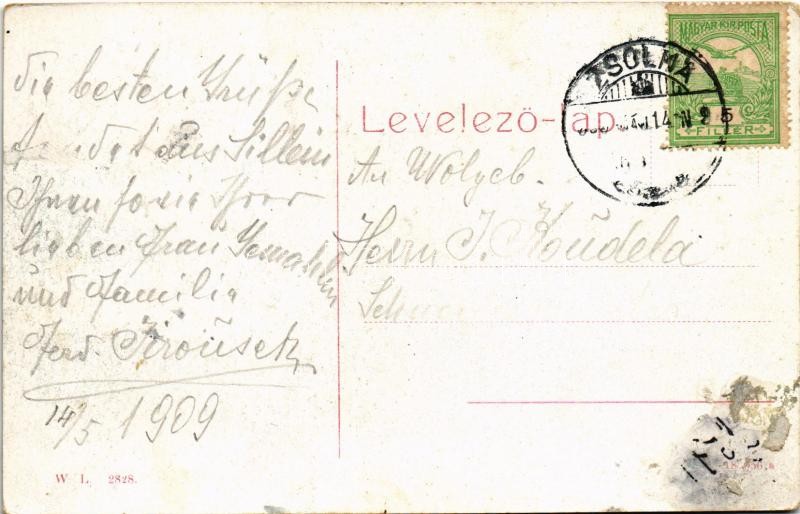 die besten Grüße
sendet aus Sillein
Ihnen sowie Ihrer
lieben Frau Gemahlin
und Familie
Ferd. Jiroúsek
14/5 1909
W. L. 2828.
Levelező-lap.
ZSOLNA
MAGYAR KIR. POSTA
5
FILLER
An Wolgeb.
Herrn J. Koudela